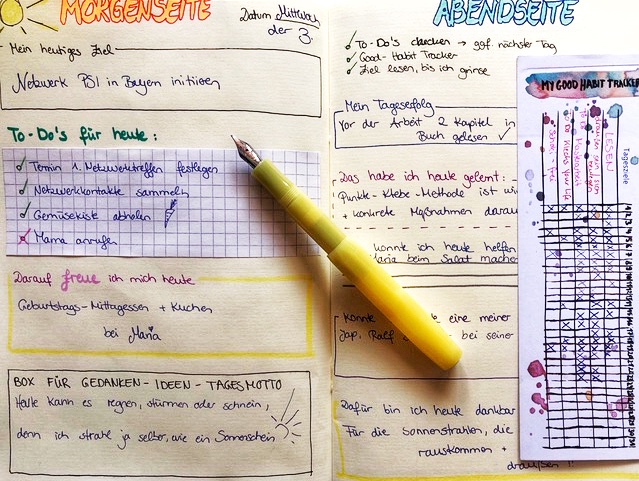 MORGENSEITE
Datum Mittwoch
der 3.
Mein heutiges Ziel
Netzwerk BSI in Bayern initiieren
To-Do's für heute:
Termin 1. Netzwerktreffen festlegen
Netzwerkkontakte sammeln
Gemüsekiste abholen
Mama anrufen
Darauf freue ich mich heute
Geburtstags-Mittagessen + Kuchen
bei Maria
BOX FÜR GEDANKEN-IDEEN-TAGESMOTTO
Heute kann es regnen, stürmen oder schnein,
denn ich strahl ja selber, wie ein Sonnenschein
ABENDSEITE
To-Do's checken → ggf. nächster Tag
Good-Habit Tracker
Ziel lesen, bis ich grinse
Mein Tageserfolg
Vor der Arbeit 2 Kapitel in
Buch gelesen ✓
Das habe ich heute gelernt:
Punkte-Klebe-Methode ist
+ konkrete Maßnahmen
konnte ich heute helfen
Maria beim Salat
Konnte eine meiner
Jap. Ralf bei seiner
Dafür bin ich heute dankbar
Für die Sonnenstrahlen, die
rauskommen +
draußen
MY GOOD HABIT TRACKER
Tagesziele
LESEN